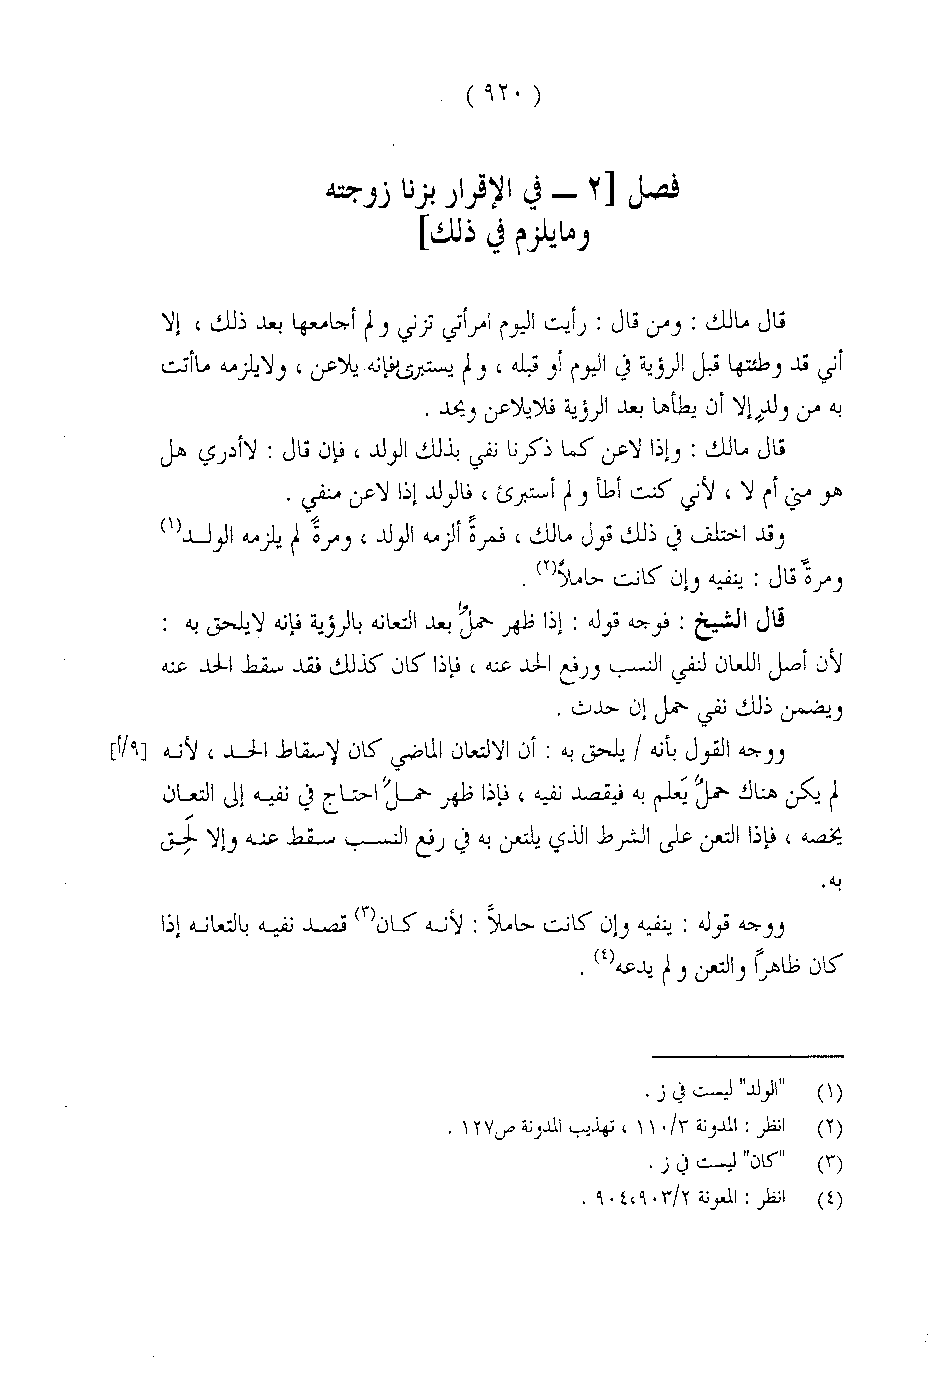 ( ٩٢٠ )
فصل [٢ ـ في الإقرار بزنا زوجته
ومايلزم في ذلك]
قال مالك : ومن قال : رأيت اليوم امرأتي تزني ولم أجامعها بعد ذلك ، إلا
أني قد وطئتها قبل الرؤية في اليوم أو قبله ، ولم يستبرئ فإنه يلاعن ، ولايلزمه ماأتت
به من ولدٍ إلا أن يطأها بعد الرؤية فلايلاعن ويحد .
قال مالك : وإذا لاعن كما ذكرنا نفي بذلك الولد ، فإن قال : لاأدري هل
هو مني أم لا ، لأني كنت أطأ ولم أستبرئ ، فالولد إذا لاعن منفي .
وقد اختلف في ذلك قول مالك ، فمرةً ألزمه الولد ، ومرةً لم يلزمه الولـد(١)
ومرةً قال : ينفيه وإن كانت حاملاً(٢) .
قال الشيخ : فوجه قوله : إذا ظهر حملٌ بعد التعانه بالرؤية فإنه لايلحق به :
لأن أصل اللعان لنفي النسب ورفع الحد عنه ، فإذا كان كذلك فقد سقط الحد عنه
ويضمن ذلك نفي حمل إن حدث .
ووجه القول بأنه / يلحق به : أن الالتعان الماضي كان لإسقاط الحـد ، لأنـه [٩/أ]
لم يكن هناك حملٌ يَعلم به فيقصد نفيه ، فإذا ظهر حمـلٌ احتـاج في نفيـه إلى التعـان
يخصه ، فإذا التعن على الشرط الذي يلتعن به في رفع النسـب سـقط عنـه وإلا لَحِـق
به.
ووجه قوله : ينفيه وإن كانت حاملاً : لأنـه كـان(٣) قصـد نفيـه بالتعانـه إذا
كان ظاهراً والتعن ولم يدعه(٤) .
(١) "الولد" ليست في ز .
(٢) انظر : المدونة ١١٠/٣ ، تهذيب المدونة ص١٢٧ .
(٣) "كان" ليست في ز .
(٤) انظر : المعونة ٩٠٤،٩٠٣/٢ .